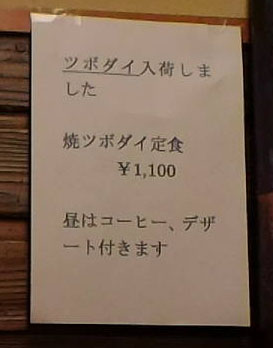 ツボダイ入荷しま
した
焼ツボダイ定食
￥1,100
昼はコーヒー、デザ
ート付きます